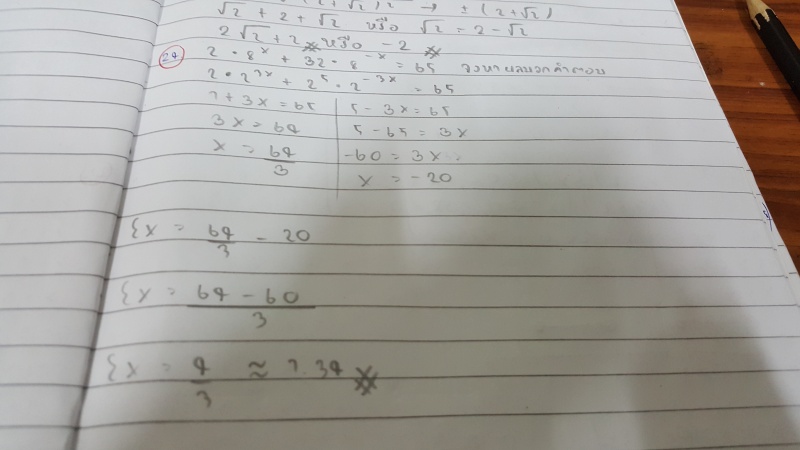 √2 + 2 + √2 หรือ √2 = 2 - √2
2√2 + 2 หรือ -2
24 2 · 8^x + 32 · 8^-x = 65 จงหาผลบวกคำตอบ
2 · 2^3x + 2^5 · 2^-3x = 65
1 + 3x = 65
3x = 64
x = 64/3
5 - 3x = 65
5 - 65 = 3x
-60 = 3x
x = -20
{x = 64/3 - 20
{x = 64 - 60/3
{x = 4/3 ≈ 1.34